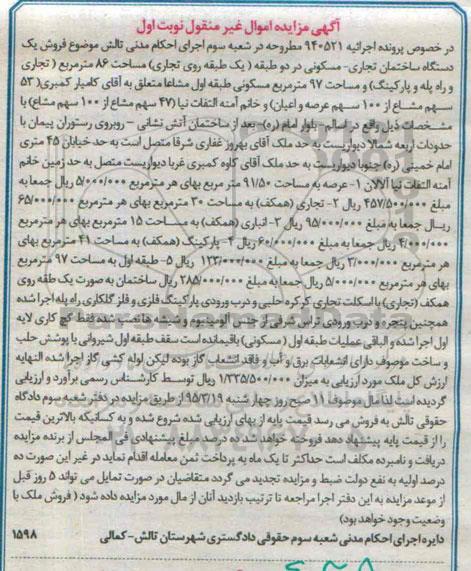 آگهی مزایده اموال غیر منقول نوبت اول
در خصوص پرونده اجرائیه ۹۴۰۵۲۱ مطروحه در شعبه سوم اجرای احکام مدنی تالش موضوع فروش یک
دستگاه ساختمان تجاری- مسکونی در دو طبقه ( یک طبقه روی تجاری) مساحت ۸۶ مترمربع ( تجاری
و راه پله و پارکینگ) و مساحت ۹۷ مترمربع مسکونی طبقه اول مشاعا متعلق به آقای کامیار کمبری( ۵۳
سهم مشاع از ۱۰۰ سهم عرصه و اعیان) و خانم آمنه التفات نیا (۴۷ سهم مشاع از ۱۰۰ سهم مشاع) با
مشخصات ذیل واقع در اسالم- بلوار امام (ره)- بعد از ساختمان آتش نشانی - روبروی رستوران پیمان با
حدودات اربعه شمالا دیواریست به حد ملک آقای بهروز غفاری شرقا متصل است به حد خیابان ۴۵ متری
امام خمینی (ره) جنوبا دیواریست به حد ملک آقای کاوه کمبری غربا دیواریست متصل به حد زمین خانم
آمنه التفات نیا آلالان ۱- عرصه به مساحت ۹۱/۵۰ متر مربع بهای هر مترمربع ۵/۰۰۰/۰۰۰ ریال جمعا به
مبلغ ۴۵۷/۵۰۰/۰۰۰ ریال ۲- تجاری (همکف) به مساحت ۳۰ مترمربع بهای هر مترمربع ۶۵/۰۰۰/۰۰۰
ریال جمعا به مبلغ ۹۵/۰۰۰/۰۰۰ ریال ۳- انباری (همکف) به مساحت ۱۵ مترمربع بهای هر مترمربع
۴/۰۰۰/۰۰۰ ریال جمعا به مبلغ ۶۰/۰۰۰/۰۰۰ ریال ۴- پارکینگ (همکف) به مساحت ۴۱ مترمربع بهای
هر مترمربع ۳/۰۰۰/۰۰۰ ریال جمعا به مبلغ ۱۲۳/۰۰۰/۰۰۰ ریال ۵- طبقه اول به مساحت ۹۷ مترمربع
بهای هر مترمربع ۵/۰۰۰/۰۰۰ ریال جمعا به مبلغ ۲۸۵/۰۰۰/۰۰۰ ریال ساختمان به صورت یک طقه روی
همکف (تجاری) بااسکلت تجاری کرکره حلبی و درب ورودی پارکینگ فلزی و فلز گلکاری راه پله اجرا شده
همچنین پنجره و درب ورودی تراس شرقی از جنس آلومینیوم و شیشه ها نصب شده فقط کم کاری لایه
اول اجرا شده و الباقی عملیات طبقه اول ( مسکونی) باقیمانده است سقف طبقه اول شیروانی با پوشش حلب
و ساخت موصوف دارای انشعابات برق و آب و فاقد انشعاب گاز بوده لیکن لوله کشی گاز اجرا شده النهایه
ارزش کل ملک مورد ارزیابی به میزان ۱/۳۳۵/۵۰۰/۰۰۰ ریال توسط کارشناس رسمی برآورد و ارزیابی
گردیده است لذا مال موصوف ۱۱ صبح روز چهارشنبه ۹۵/۳/۱۹ از طریق مزایده در دفتر شعبه سوم دادگاه
حقوقی تالش به فروش می رسد قیمت پایه از بهای ارزیابی شده شروع شده و به کسانیکه بالاترین قیمت
را از قیمت پایه پیشنهاد دهد فروخته خواهد شد ده درصد مبلغ پیشنهادی فی المجلس از برنده مزایده
دریافت و نامبرده مکلف است حداکثر تا یک ماه به پرداخت ثمن معامله اقدام نماید در غیر این صورت ده
درصد اولیه به نفع دولت ضبط و مزایده تجدید می گردد متقاضیان در صورت تمایل می تواند ۵ روز قبل
از موعد مزایده به این دفتر اجرا مراجعه تا ترتیب بازدید آنان از مال مورد مزایده داده شود ( فروش ملک با
وضعیت وجود خواهد بود)
دایره اجرای احکام مدنی شعبه سوم حقوقی دادگستری شهرستان تالش- کمالی ۱۵۹۸